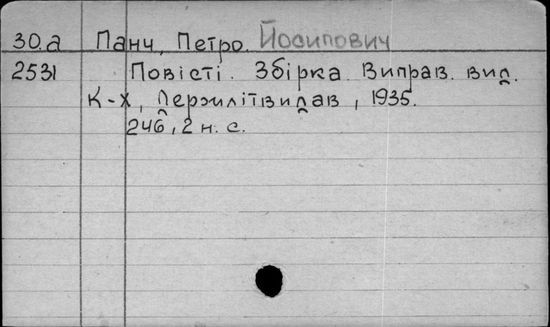 30.а Панч, Петро. Йосипович
2531 Повісті. Збірка. Виправ. вид.
К-Х, Держлітвидав, 1935.
246, 2 н. с.